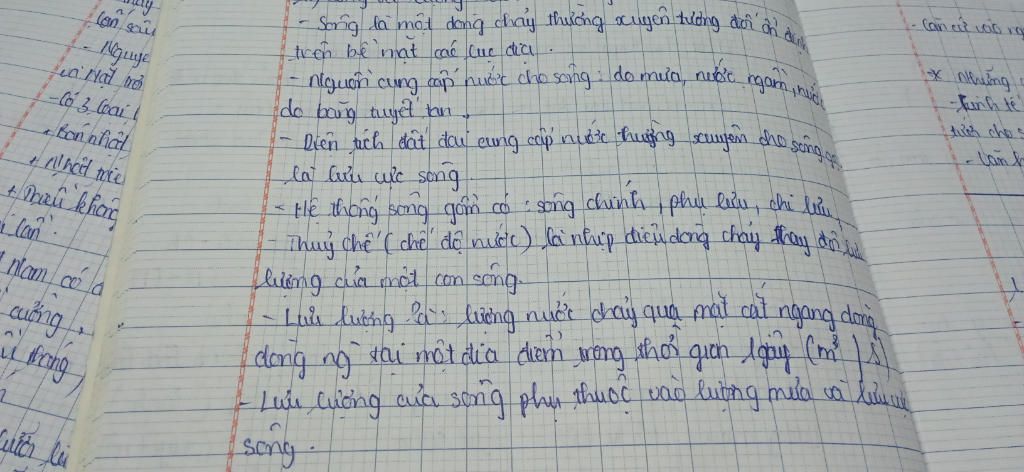 - Sông là một dòng chảy thường xuyên tương đối ổn định
trên bề mặt các lục địa.
- Nguồn cung cấp nước cho sông: do mưa, nước ngầm, nước
do băng tuyết tan.
- Diện tích đất đai cung cấp nước thường xuyên cho sông gọi
là lưu vực sông
- Hệ thống sông gồm có: sông chính, phụ lưu, chi lưu,
- Thuỷ chế (chế độ nước) là nhịp điệu dòng chảy thay đổi lưu
lượng của một con sông.
- Lưu lượng là: lượng nước chảy qua mặt cắt ngang dòng
dong ng tại một địa điểm trong thời gian 1 giây (m³/s)
- Lưu lượng của sông phụ thuộc vào lượng mưa và lưu vực
sông.
lần sâu
- Nguyê
- Có 3 loại
+ Bán nhật
+ Nhật triều
+ Triều không
Nam có
cường,
- Căn cứ vào ng
* Những
- Kinh tế